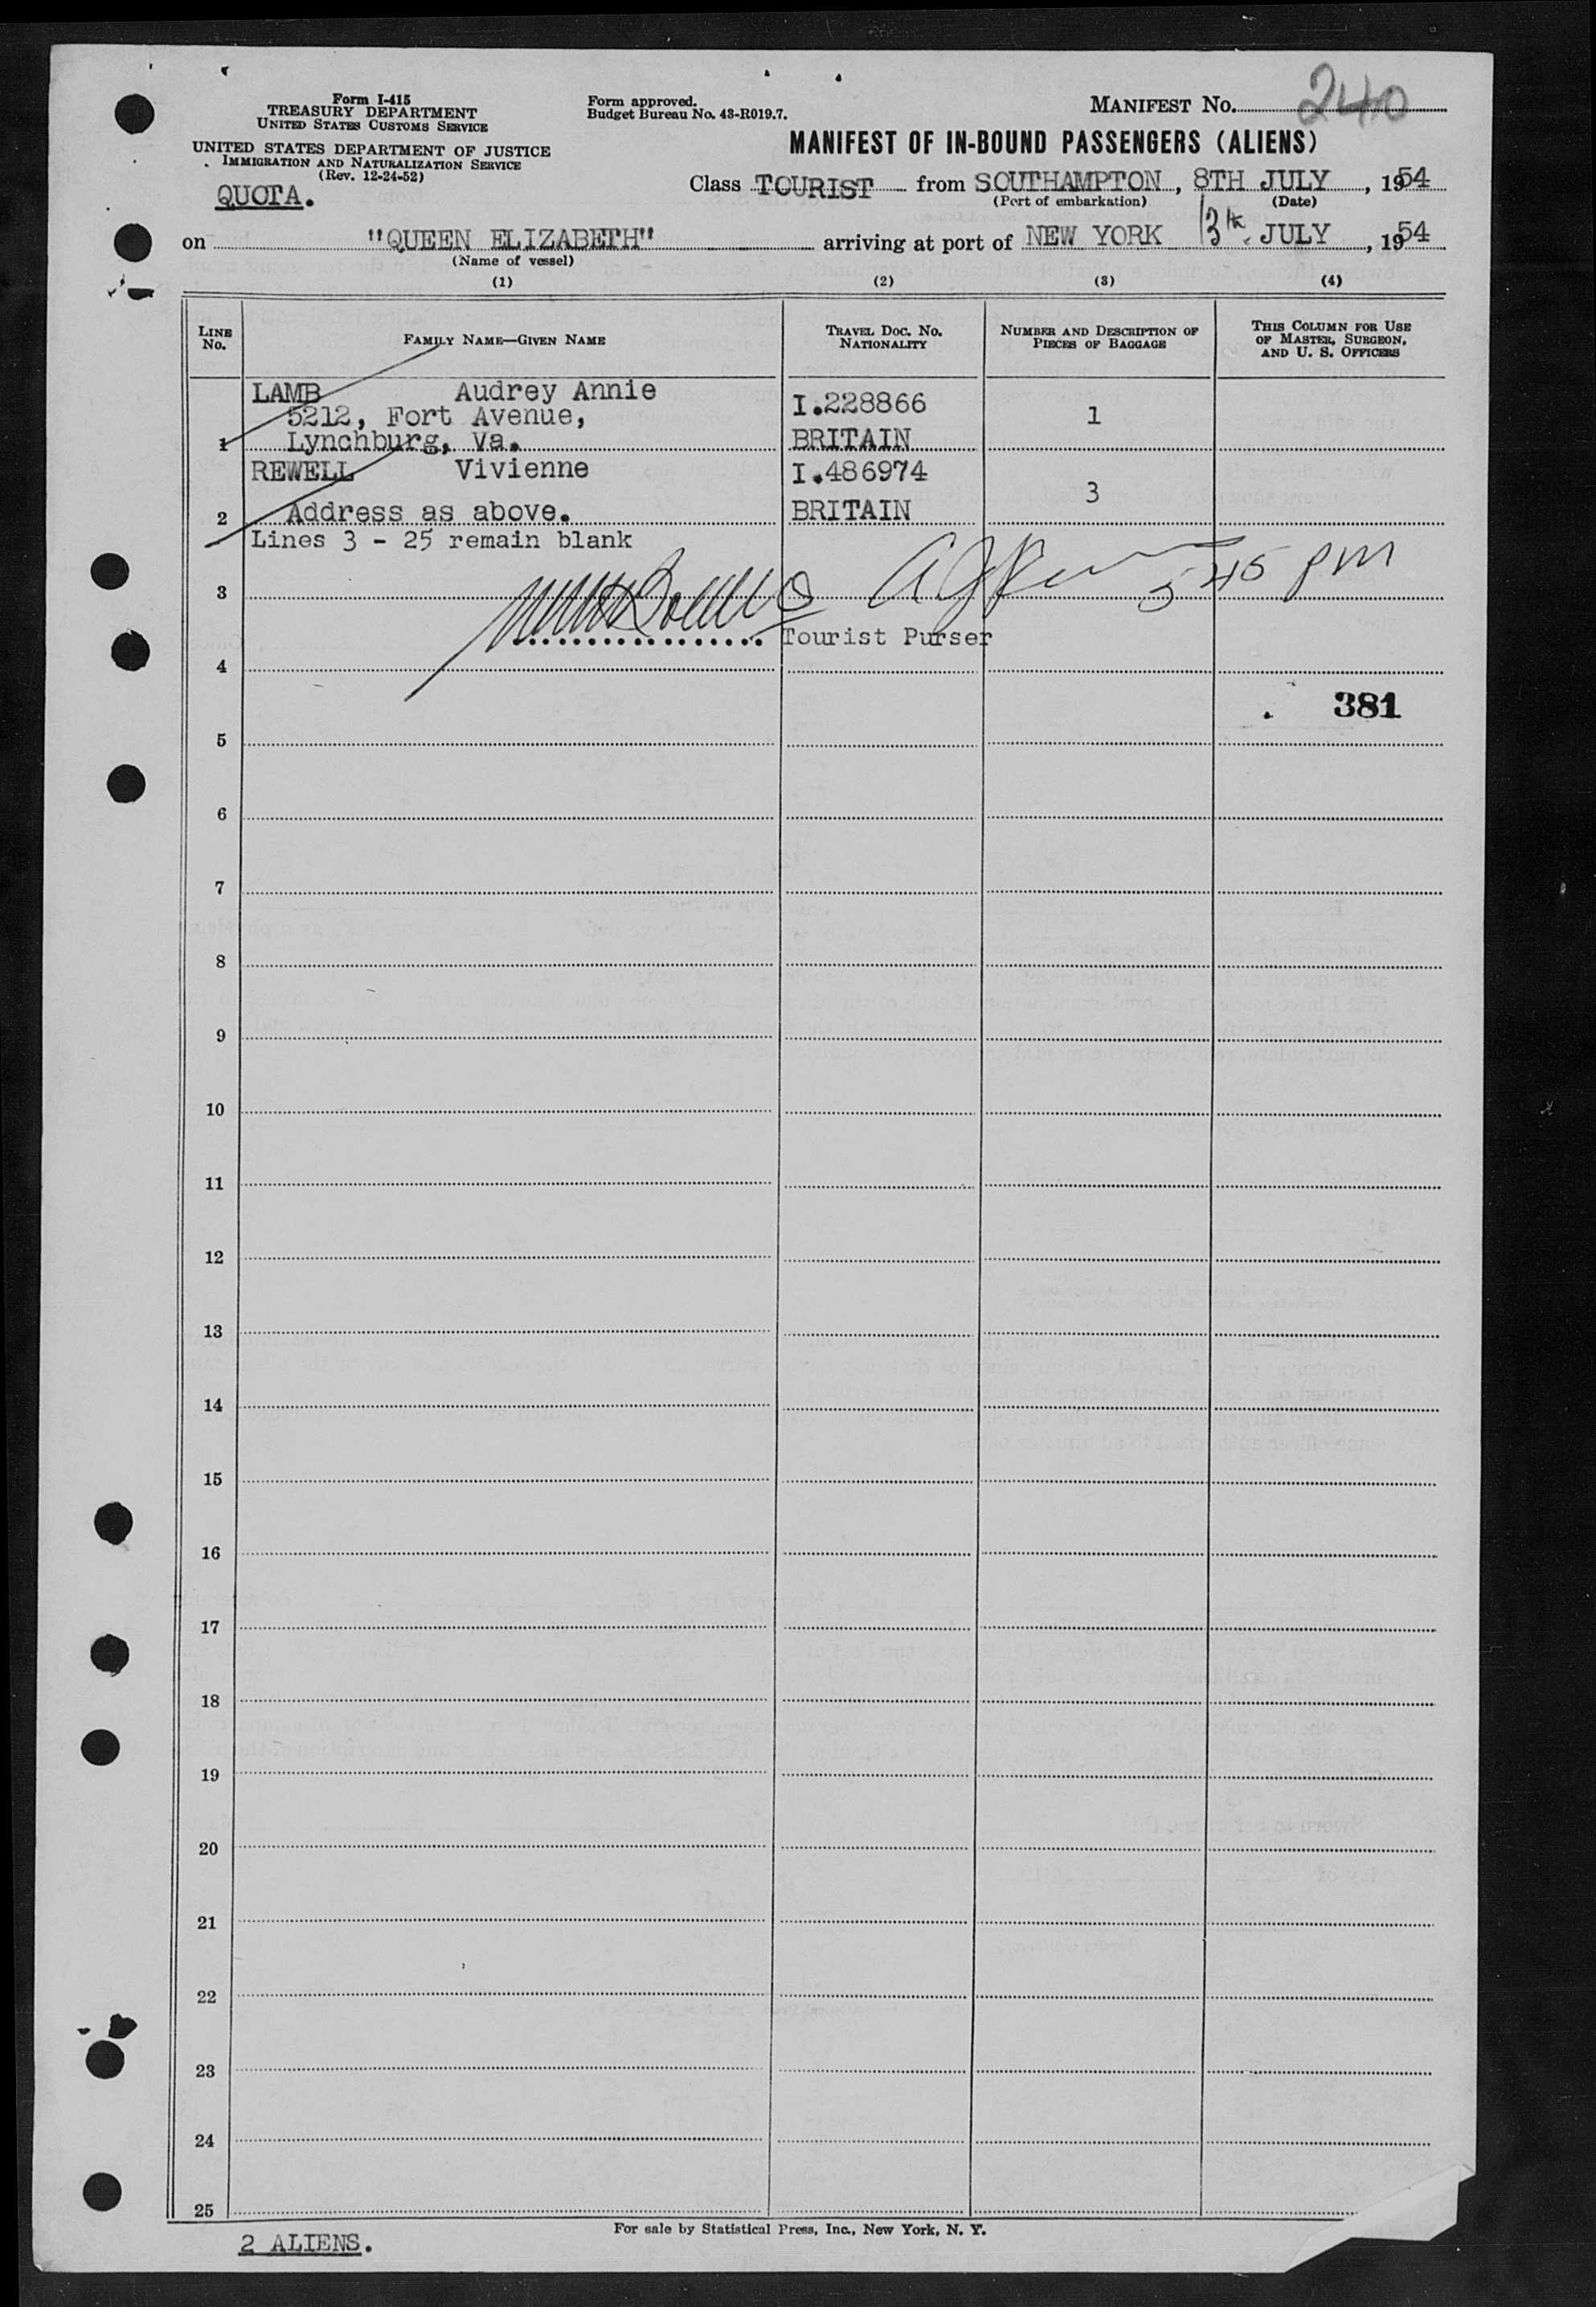 Form I-415
TREASURY DEPARTMENT
UNITED STATES CUSTOMS SERVICE
UNITED STATES DEPARTMENT OF JUSTICE
IMMIGRATION AND NATURALIZATION SERVICE
(Rev. 12-24-52)
QUOTA.
Form approved.
Budget Bureau No. 43-R019.7.
MANIFEST No. 240
MANIFEST OF IN-BOUND PASSENGERS (ALIENS)
Class TOURIST from SOUTHAMPTON, 8TH JULY, 1954
(Port of embarkation) (Date)
on "QUEEN ELIZABETH" arriving at port of NEW YORK 13th JULY, 1954
(Name of vessel)
(1) (2) (3) (4)
LINE No. FAMILY NAME—GIVEN NAME TRAVEL DOC. NO. NATIONALITY NUMBER AND DESCRIPTION OF PIECES OF BAGGAGE THIS COLUMN FOR USE OF MASTER, SURGEON, AND U. S. OFFICERS
LAMB Audrey Annie I.228866
5212, Fort Avenue, 1
1 Lynchburg, Va. BRITAIN
REWELL Vivienne I.486974
3
2 Address as above. BRITAIN
Lines 3 - 25 remain blank
545 pm
3
Tourist Purser
4
381
5
6
7
8
9
10
11
12
13
14
15
16
17
18
19
20
21
22
23
24
25
For sale by Statistical Press, Inc., New York, N. Y.
2 ALIENS.